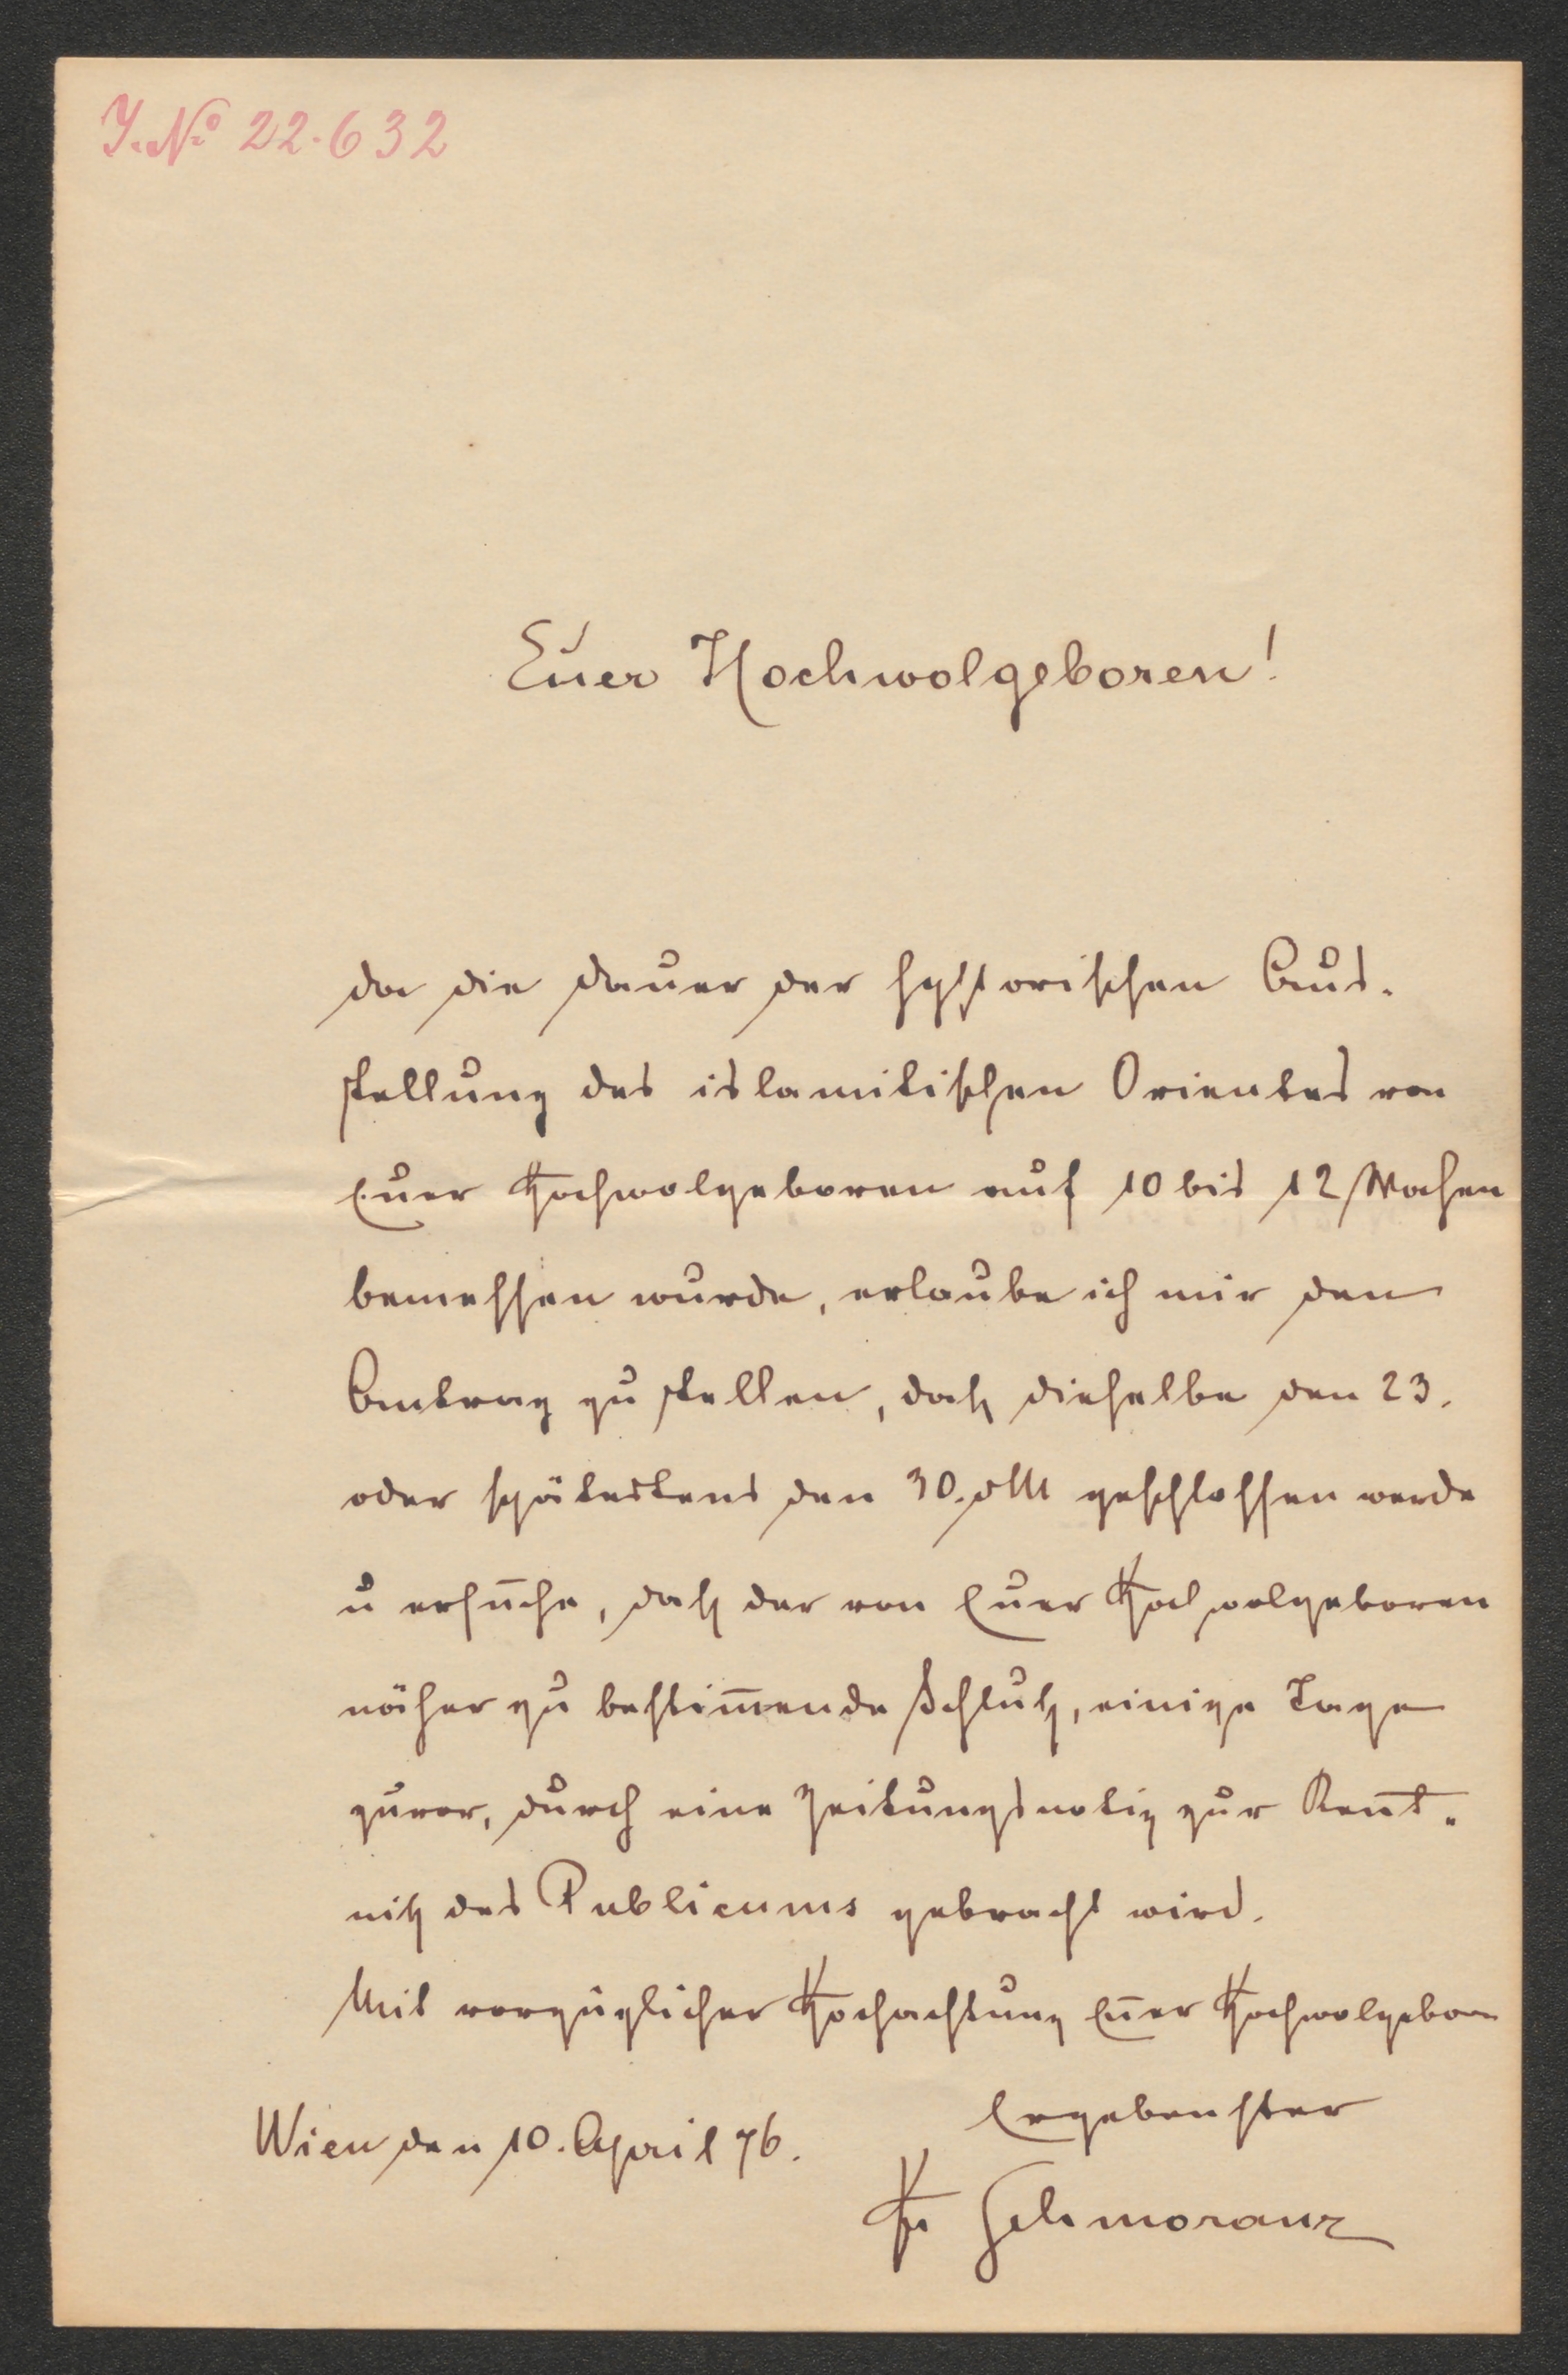 J. № 22.632
Euer Hochwolgeboren!
da die Dauer der hystorischen Aus-
stellung des islamitischen Orientes von
Euer Hochwolgeboren auf 10 bis 12 Wochen
bemessen wurde, erlaube ich mir den
Antrag zu stellen, daß dieselbe den 23.
oder spätestens den 30. dM geschlossen werde
u ersuche, daß der von Euer Hochwolgeboren
näher zu bestim̄ende Schluß, einige Tage
zuvor, durch eine Zeitungsnotiz zur Ken̄t-
niß des Publicums gebracht wird.
Mit vorzüglicher Hochachtung Euer Hochwolgeborn
Ergebenster
Wien den 10. April 76.
Fr Schmoranz